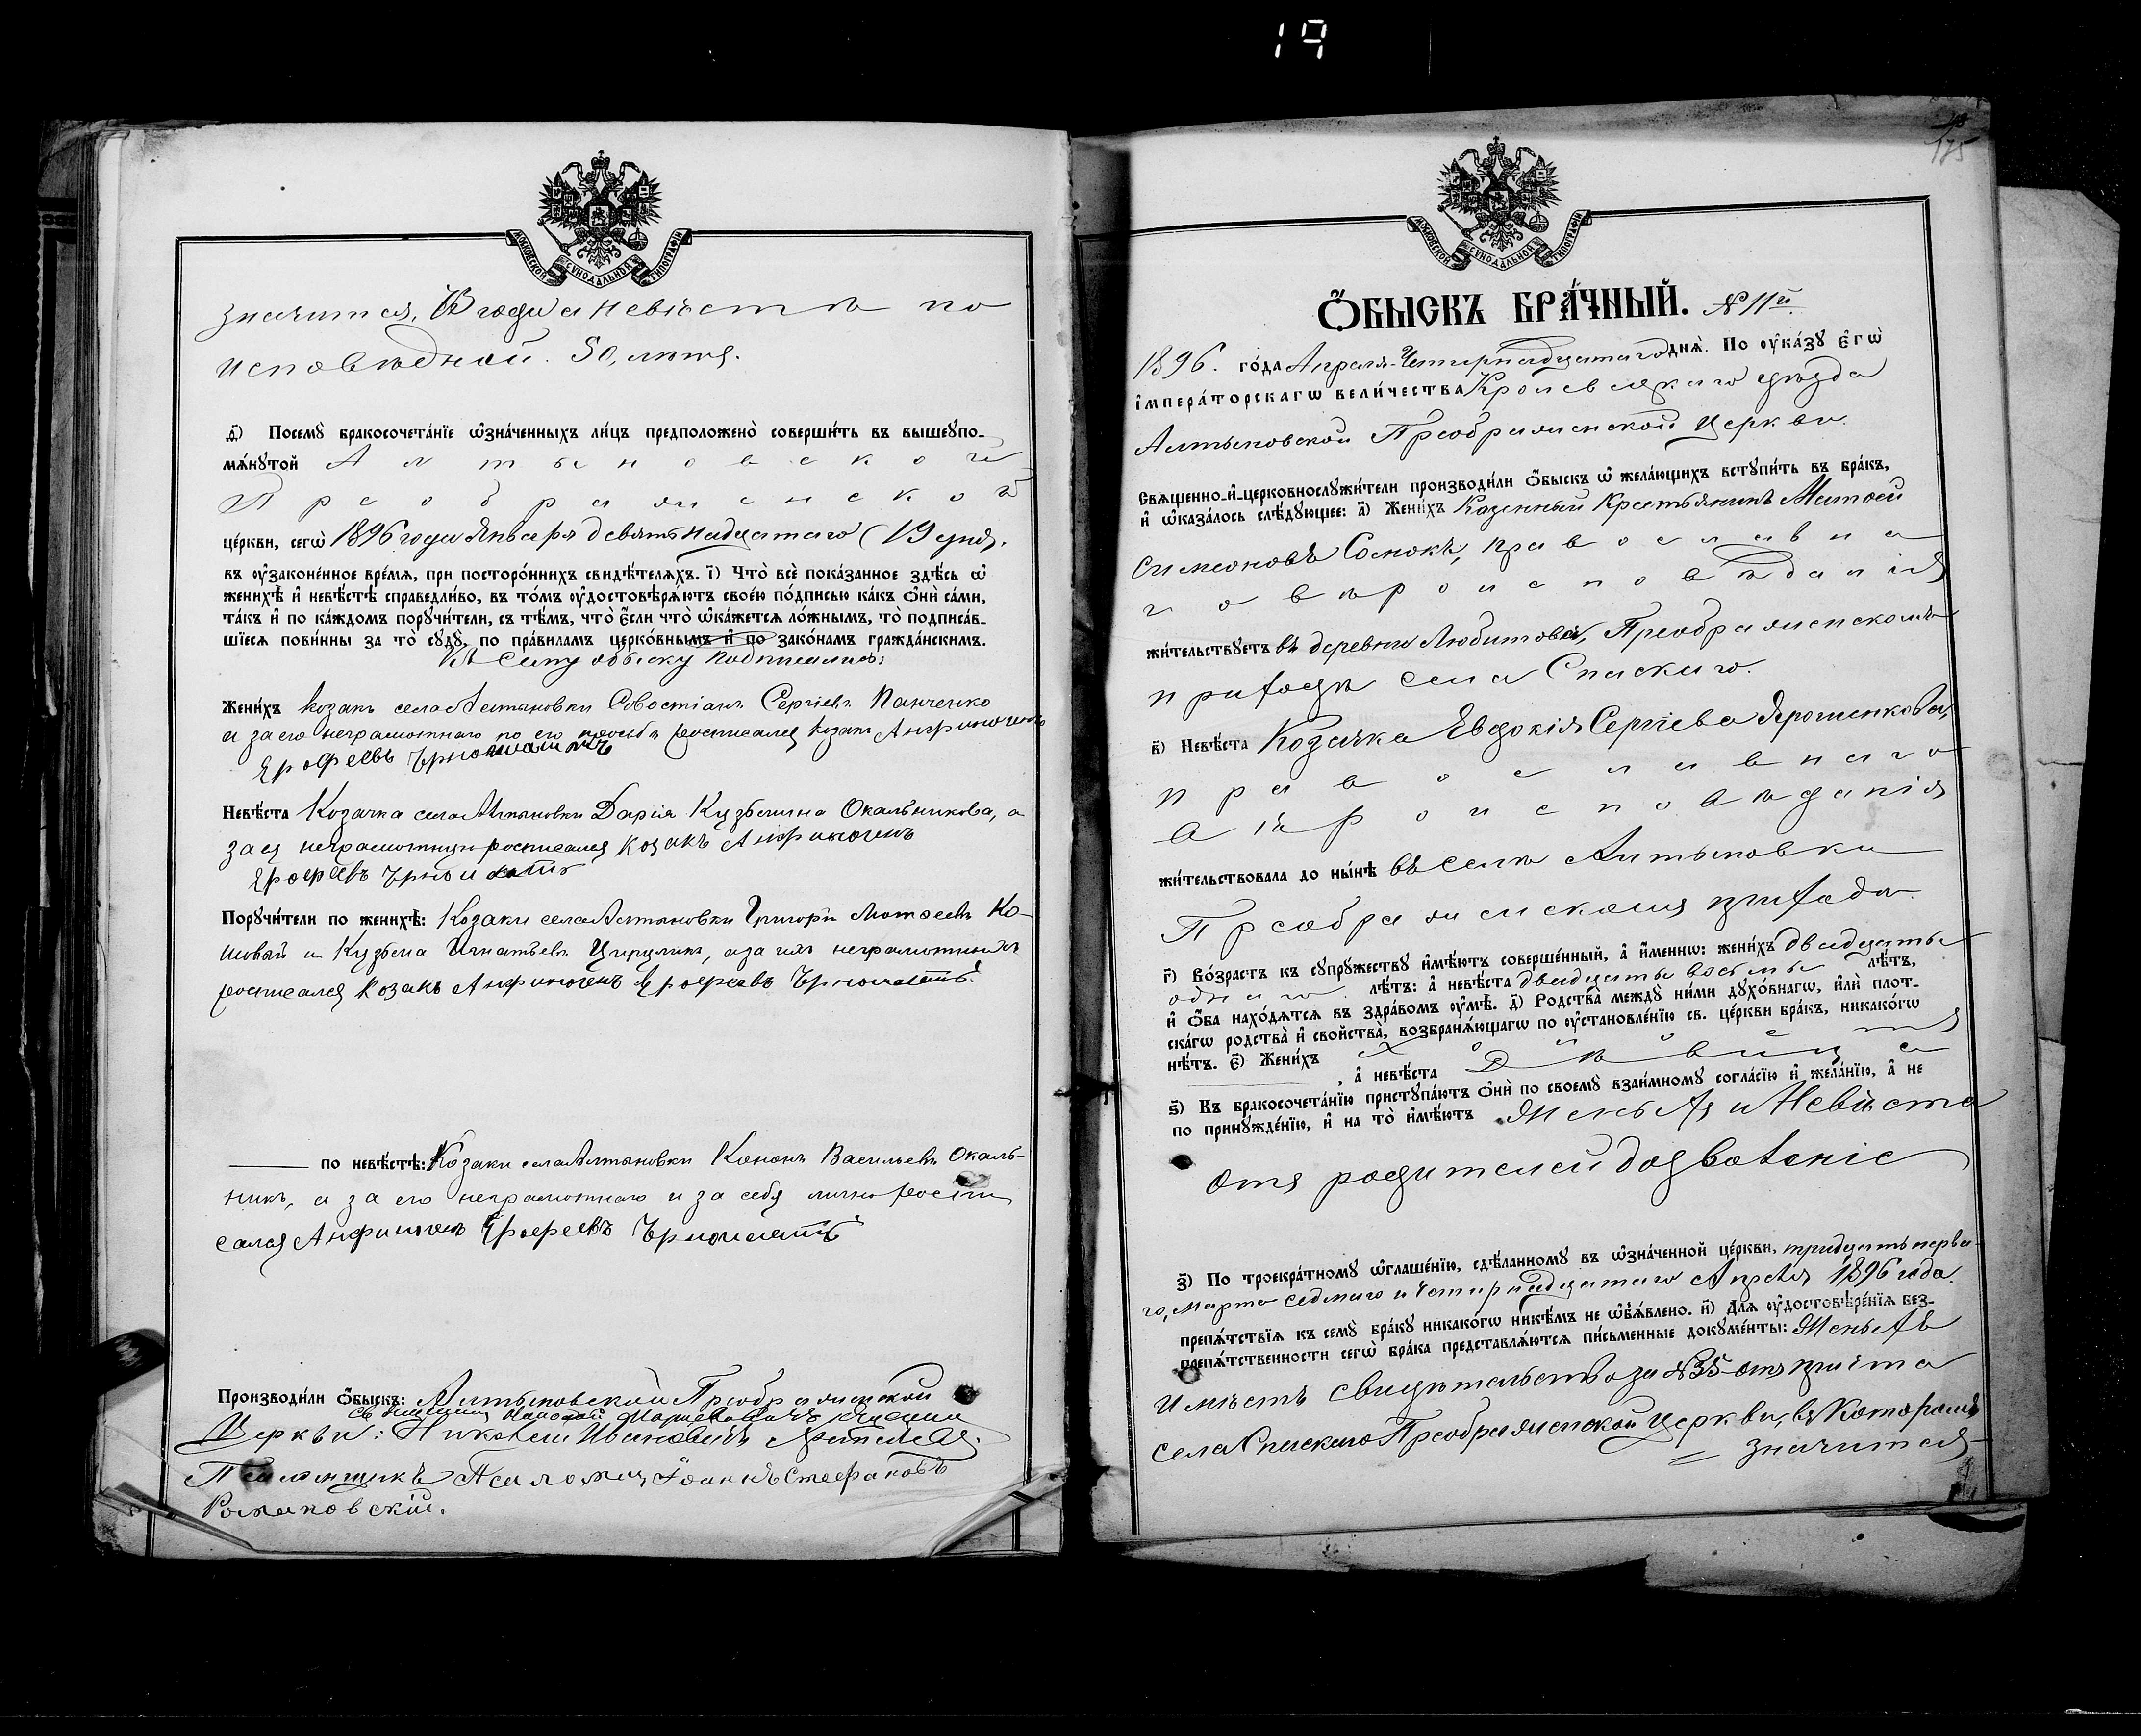 19
МОСКОВСКОЙ СУНОДАЛЬНОЙ ТИПОГРАФІИ
значится, а невѣста по
исповѣдной. 50, листѣ.
ѳ҃) Посемꙋ̀ бракосочета́нїе ѡ҆зна́ченныхъ ли́цъ предположено̀ соверши́ть въ вышеꙋпо-
мѧ́нꙋтой Алтыновской
Преображенской
це́ркви, сегѡ̀ 1896 года Января девятнадцатаго (19 дня).
въ ᲂу҆зако́ненное вре́мѧ, при посторо́ннихъ свидѣ́телѧхъ. і҃) Что̀ всѐ пока́занное здѣ́сь ѡ҆
женихѣ̀ и҆ невѣ́стѣ справедли́во, въ то́мъ ᲂу҆достовѣрѧ́ютъ свое́ю по́дписью ка́къ ѻ҆нѝ са́ми,
та́къ и҆ по ка́ждомъ порꙋчи́тели, съ тѣ́мъ, что̀ є҆́сли что̀ ѡ҆ка́жетсѧ ло́жнымъ, то̀ подписа́в-
шїесѧ пови́нны за то̀ сꙋдꙋ̀, по пра́виламъ церко́внымъ и҆ по зако́намъ гражда́нскимъ.
Къ сему обыску подписались:
Жени́хъ козакъ села Алтыновки Совостіанъ Сергіевъ Панченко
а за его неграмотнаго по его прозбѣ росписался козакъ Анфиногенъ
Ерофеевъ
Невѣ́ста Козачка села Алтыновки Дарія Кузьмина Окальникова, а
за ея неграмотную росписался козакъ Анфиногенъ
Ерофеевъ
Порꙋчи́тели по женихѣ̀: Козаки села Алтыновки Григорій Мотфеевъ Ко-
шовый и Кузьма Игнатьевъ Цирулик, а за ихъ неграмотныхъ
росписался козакъ Анфиногенъ Ерофеевъ
по невѣ́стѣ: Козаки села Алтыновки Кононъ Васильевъ Окаль-
никъ, а за его неграмотнаго и за себя лично роспи
сался Анфиногенъ Ерофеевъ
Производи́ли ѻ҆́быскъ: Алтыновской Преображенской
Церкви:
Псаломщикъ Іоаннъ Стефановъ
Романовскій.
175
МОСКОВСКОЙ СУНОДАЛЬНОЙ ТИПОГРАФІИ
Ѻ҆́БЫСКЪ БРА́ЧНЫЙ. № 11й.
1896. го́да Апреля Четырнадцатаго днѧ̀. По ᲂу҆ка́зꙋ є҆гѡ̀
і҆мпера́торскагѡ вели́чества Кролевецкаго уѣзда
Алтыновской Преображенской Церкви.
Свѧщенно-и҆-церковнослꙋжи́тели производи́ли ѻ҆́быскъ ѡ҆ жела́ющихъ встꙋпи́ть въ бра́къ,
и҆ ѡ҆каза́лось слѣ́дꙋющее: а҃) Жени́хъ Казенный Крестьянинъ Матфей
Симеоновъ Сомокъ, православна
го вѣроисповѣданія
жи́тельствꙋетъ въ деревнѣ Любитова, Преображенскомъ
приходѣ села Спаскаго.
в҃) Невѣ́ста Козачка Евдокія Сергіева Ярошенкова,
православнаго
вѣроисповѣданія
жи́тельствовала до ны́нѣ въ селѣ Алтыновки
Преображенскомъ приходѣ.
г҃) Во́зрастъ къ сꙋпрꙋ́жествꙋ и҆мѣ́ютъ соверше́нный, а҆ и҆́менно: жени́хъ двадцать
одного. лѣ́тъ: а҆ невѣ́ста двадцать восьмь лѣ́тъ,
и҆ ѻ҆́ба нахо́дѧтсѧ въ здра́вомъ ᲂу҆мѣ̀. д҃) Родства̀ междꙋ̀ ни́ми дꙋхо́внагѡ, и҆лѝ плот-
ска́гѡ родства̀ и҆ сво́йства̀, возбранѧ́ющагѡ по ᲂу҆становле́нїю св. це́ркви бра́къ, никако́гѡ
нѣ́тъ. є҃) Жени́хъ холостъ
, а҆ невѣ́ста Дѣвица
ѕ҃) Къ бракосочета́нїю пристꙋпа́ютъ ѻ҆нѝ по своемꙋ̀ взаи́мномꙋ согла́сїю и҆ жела́нїю, а҆ не
по принꙋжде́нїю, и҆ на то̀ и҆мѣ́ютъ Женихъ и Невѣста
отъ родителей дозволеніе
з҃) По троекра́тномꙋ ѡ҆глаше́нїю, сдѣ́ланномꙋ въ ѡ҆зна́ченной це́ркви, тридцать перва-
го, марта седмаго и четырнадцатаго Апреля 1896 года.
препѧ́тствїѧ къ семꙋ̀ бра́кꙋ никако́гѡ никѣ́мъ не ѡ҆бъѧ́влено. и҃) Длѧ ᲂу҆достовѣре́нїѧ без-
препѧ́тственности сегѡ̀ бра́ка представлѧ́ютсѧ пи́сьменные докꙋме́нты: Женихъ
имѣетъ свидѣтельство за №35 отъ причта
села Спаскаго Преображенской Церкви, въ которомъ
значится